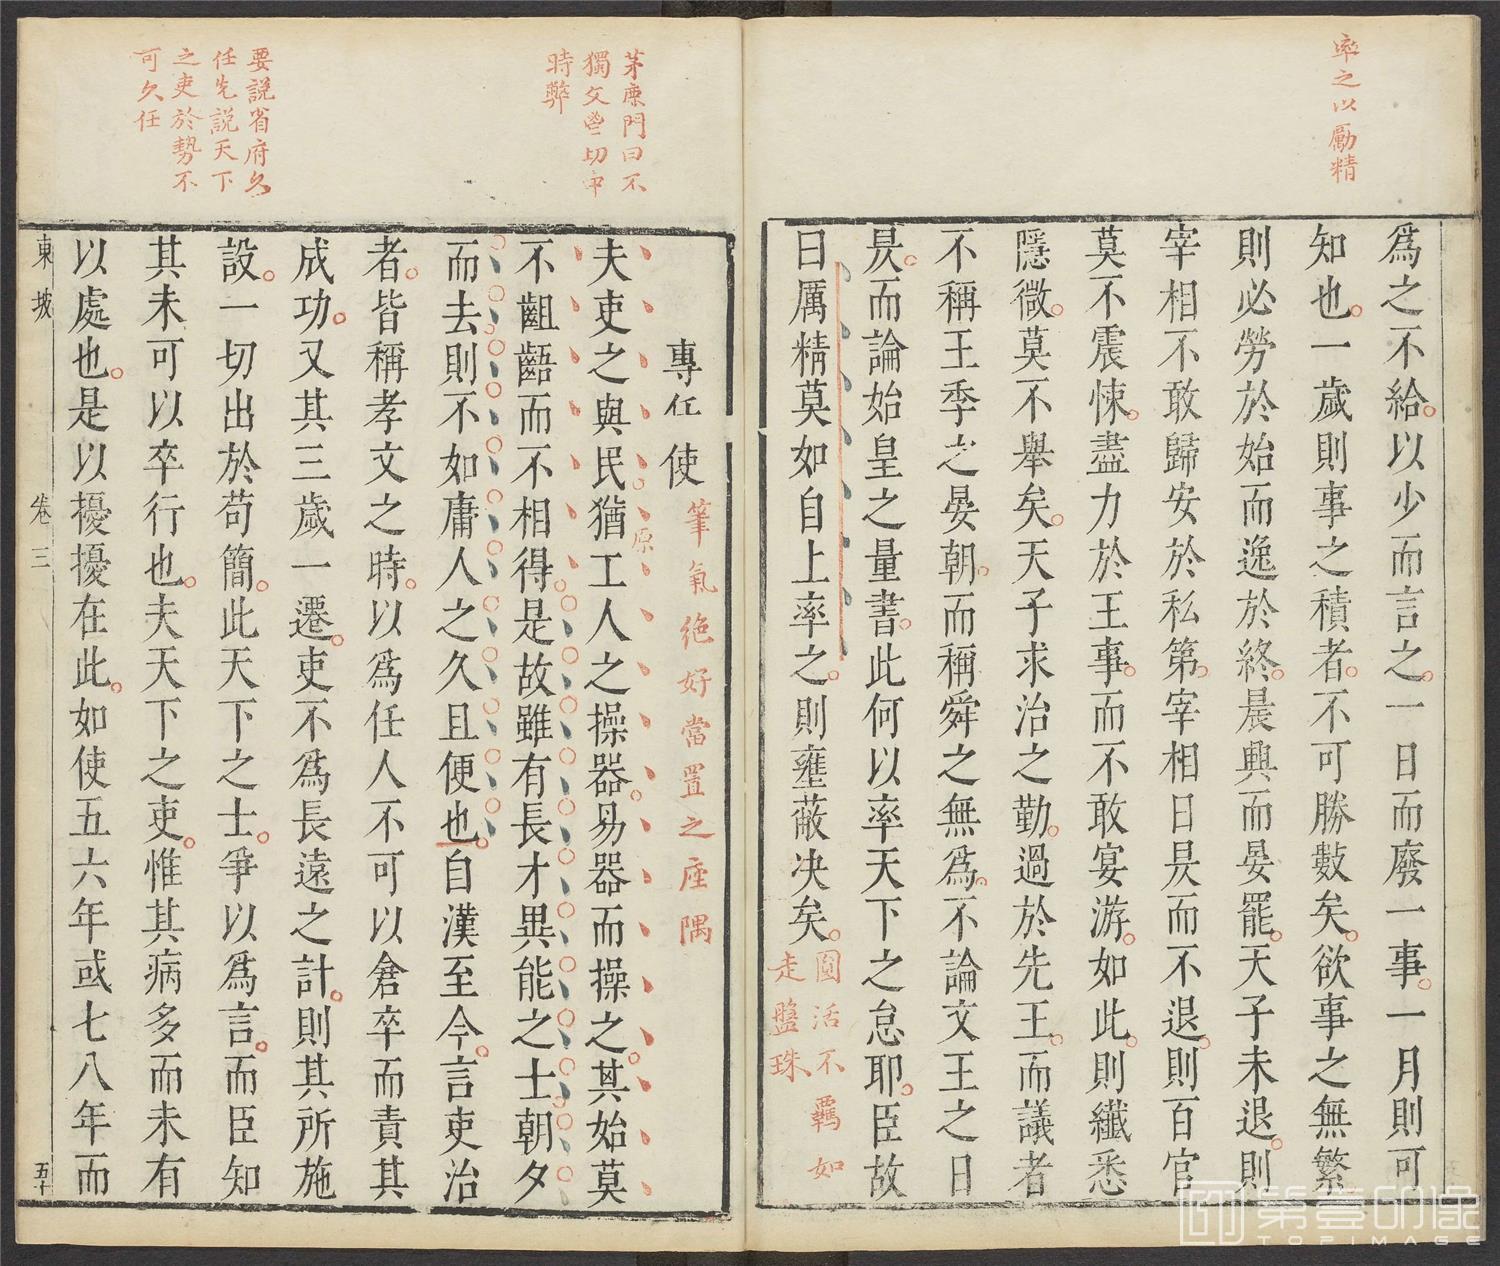 率之以勵精
爲之不給以少而言之一日而廢一事一月則可
知也一歲則事之積者不可勝數矣欲事之無繁
則必勞於始而逸於終晨興而晏罷天子未退則
宰相不敢歸安於私第宰相日昃而不退則百官
莫不震悚盡力於王事而不敢宴游如此則纖悉
隱微莫不舉矣天子求治之勤過於先王而議者
不稱王季之晏朝而稱舜之無爲不論文王之日
昃而論始皇之量書此何以率天下之怠耶臣故
曰厲精莫如自上率之則壅蔽决矣
圓活不羈如
走盤珠
茅鹿門曰不
獨文瑩切中
時弊
要説省府久
任先説天下
之吏於勢不
可久任
專任使
筆氣絶好當置之座隅
夫吏之與民猶工人之操器易器而操之其始莫
原
不齟齬而不相得是故雖有長才異能之士朝夕
而去則不如庸人之久且便也自漢至今言吏治
者皆稱孝文之時以爲任人不可以倉卒而責其
成功又其三歲一遷吏不爲長遠之計則其所施
設一切出於苟簡此天下之士爭以爲言而臣知
其未可以卒行也夫天下之吏惟其病多而未有
以處也是以擾擾在此如使五六年或七八年而
東坡
卷三
五十
第壹印像
TOPIMAGE